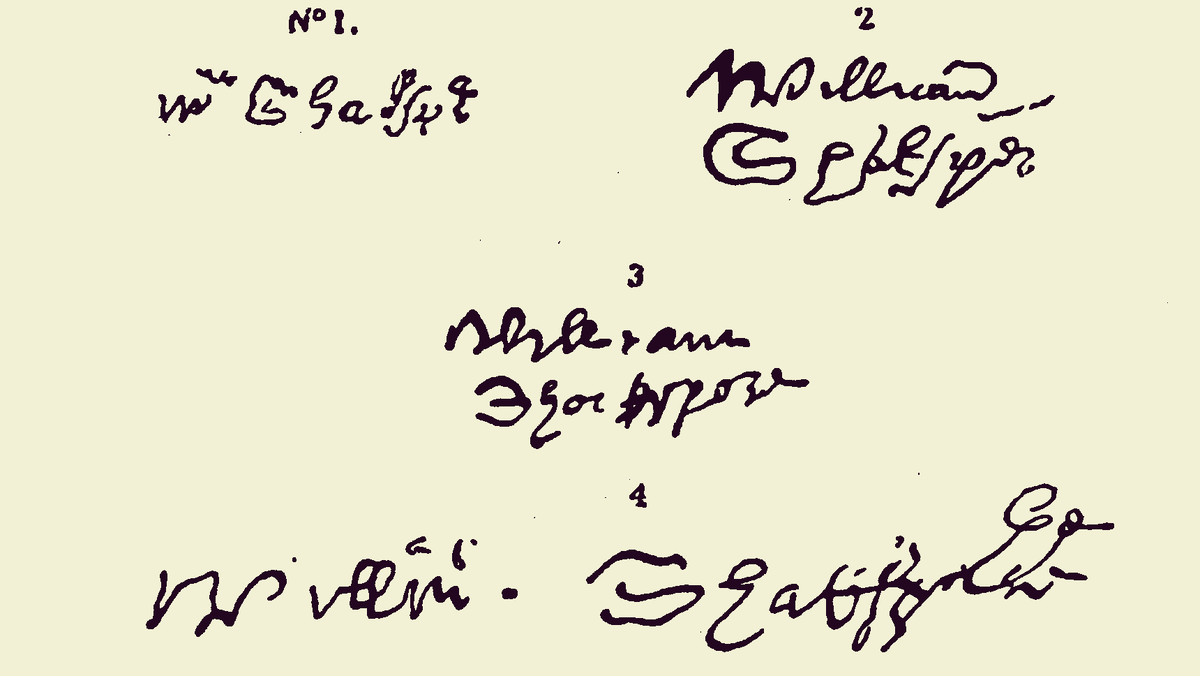 Nº 1.
Wm Shaksp
2
William
Shakspe
3
William
Shakspere
4
William
Shakspere